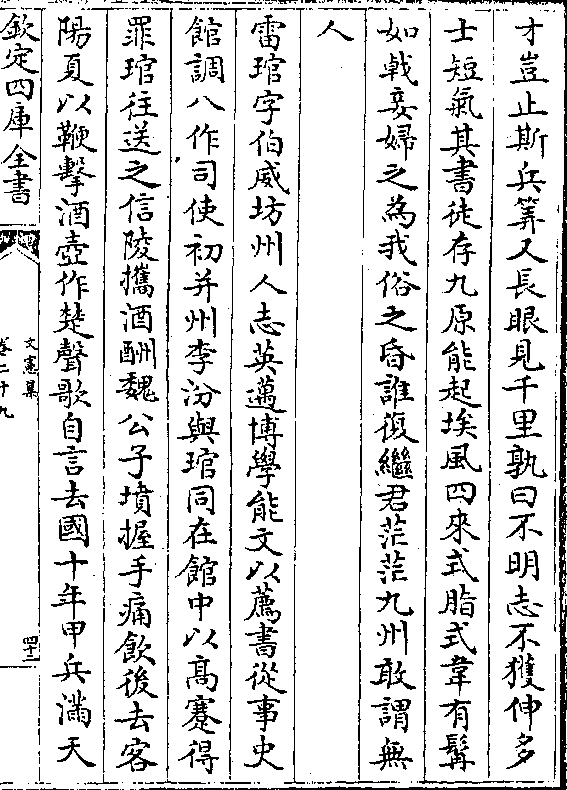 才豈止斯兵筭又長眼見千里孰曰不明志不獲伸多
士短氣其書徒存九原能起埃風四來式脂式韋有髯
如戟妾婦之為我俗之昏誰復繼君茫茫九州敢謂無
人
雷琯字伯威坊州人志英邁博學能文以薦書從事史
館調八作司使初并州李汾與琯同在館中以髙蹇得
罪琯往送之信陵攜酒酬魏公子墳握手痛飲後去客
陽夏以鞭擊酒壺作楚聲歌自言去國十年甲兵滿天
欽定四庫全書
文憲集
卷二十九
四十二